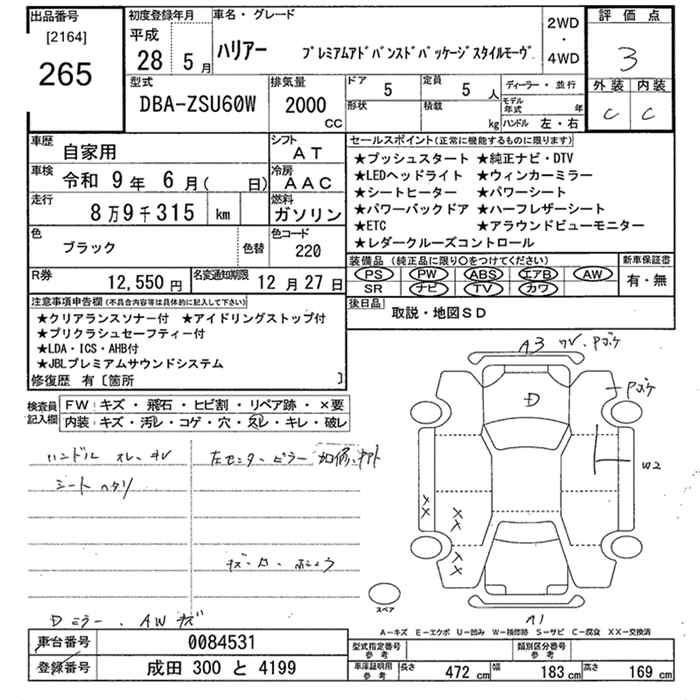 出品番号
[2164]
265
初度登録年月
平成
28 5月
車名・グレード
ハリアー プレミアムアドバンスドパッケージスタイルモーヴ
2WD
・
4WD
評価点
3
外装 内装
C C
型式
DBA-ZSU60W
排気量
2000
CC
ドア
5
定員
5人
形状
積載
kg
ディーラー・並行
モデル年式 年
ハンドル 左・右
車歴
自家用
シフト
AT
車検
令和 9年 6月( 日)
冷房
AAC
走行
8万9千315 km
燃料
ガソリン
色
ブラック
色替
色コード
220
R券
12,550円
名変通知期限
12月27日
セールスポイント(正常に機能するものに限ります)
★プッシュスタート ★純正ナビ・DTV
★LEDヘッドライト ★ウィンカーミラー
★シートヒーター ★パワーシート
★パワーバックドア ★ハーフレザーシート
★ETC ★アラウンドビューモニター
★レダークルーズコントロール
装備品 (純正品に限り○をつけてください)
PS PW ABS エアB AW
SR ナビ TV カワ
新車保証書
有・無
後日品
取説・地図SD
注意事項申告欄(不具合内容等は具体的に記入して下さい)
★クリアランスソナー付 ★アイドリングストップ付
★プリクラシュセーフティー付
★LDA・ICS・AHB付
★JBLプレミアムサウンドシステム
修復歴 有〔箇所 〕
検査員記入欄
FW: キズ・飛石・ヒビ割・リペア跡・×要
内装: キズ・汚レ・コゲ・穴・スレ・キレ・破レ
ハンドル スレ、キレ
シート ヘタリ
左センターピラー
Dミラー、AWキズ
A3
D
W2
XX
XX
XX
A1
スペア
A-キズ E-エクボ U-凹み W-補修跡 S-サビ C-腐食 XX-交換済
車台番号
0084531
登録番号
成田 300 と 4199
型式指定番号
参考
類別区分番号
参考
車庫証明用
参考
長さ 472 cm 幅 183 cm 高さ 169 cm